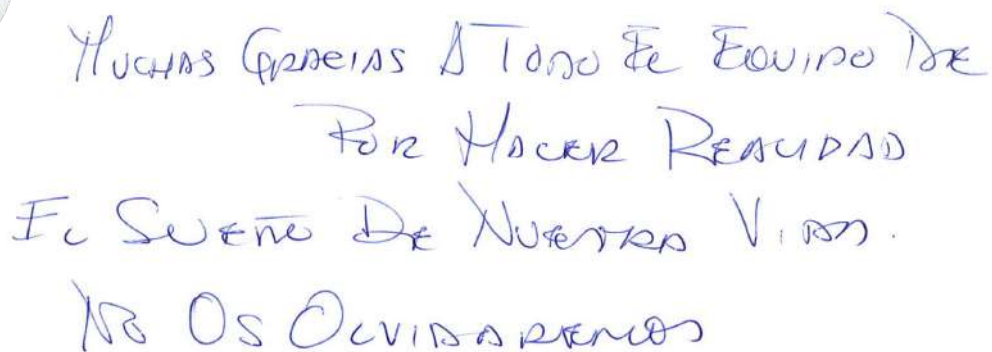 MUCHAS GRACIAS A TODO EL EQUIPO DE
POR HACER REALIDAD
EL SUEÑO DE NUESTRA VIDA.
NO OS OLVIDAREMOS